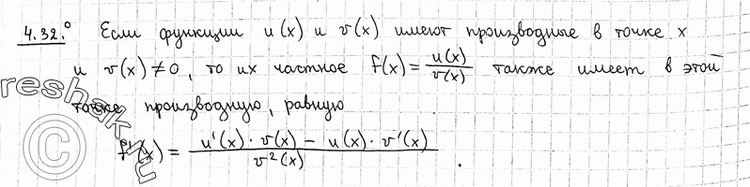 4.32.° Если функции u(x) и v(x) имеют производные в точке x
и v(x) ≠ 0, то их частное f(x) = u(x)/v(x) также имеет в этой
точке производную, равную
f'(x) = (u'(x) · v(x) − u(x) · v'(x)) / v²(x) .
reshak.ru
©